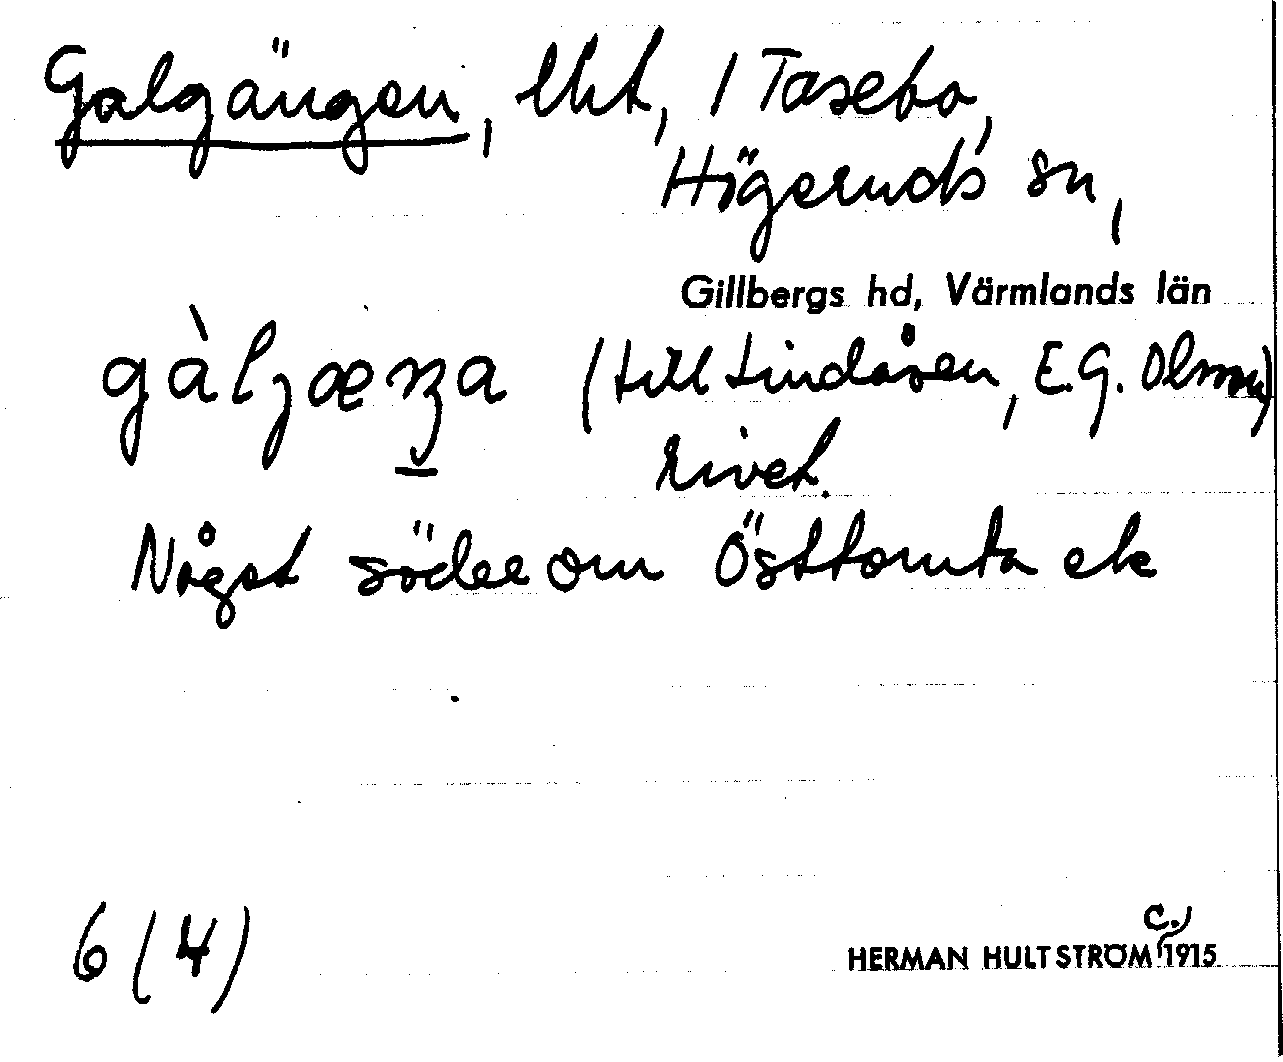 Galgängen, lht, 1 Tasebo,
Högeruds sn,
Gillbergs hd, Värmlands län
(till Lindåsen, E.G. Olsson)
rivet.
Något söder om Östtomta ek
6 (4)
HERMAN HULTSTRÖM c., 1915